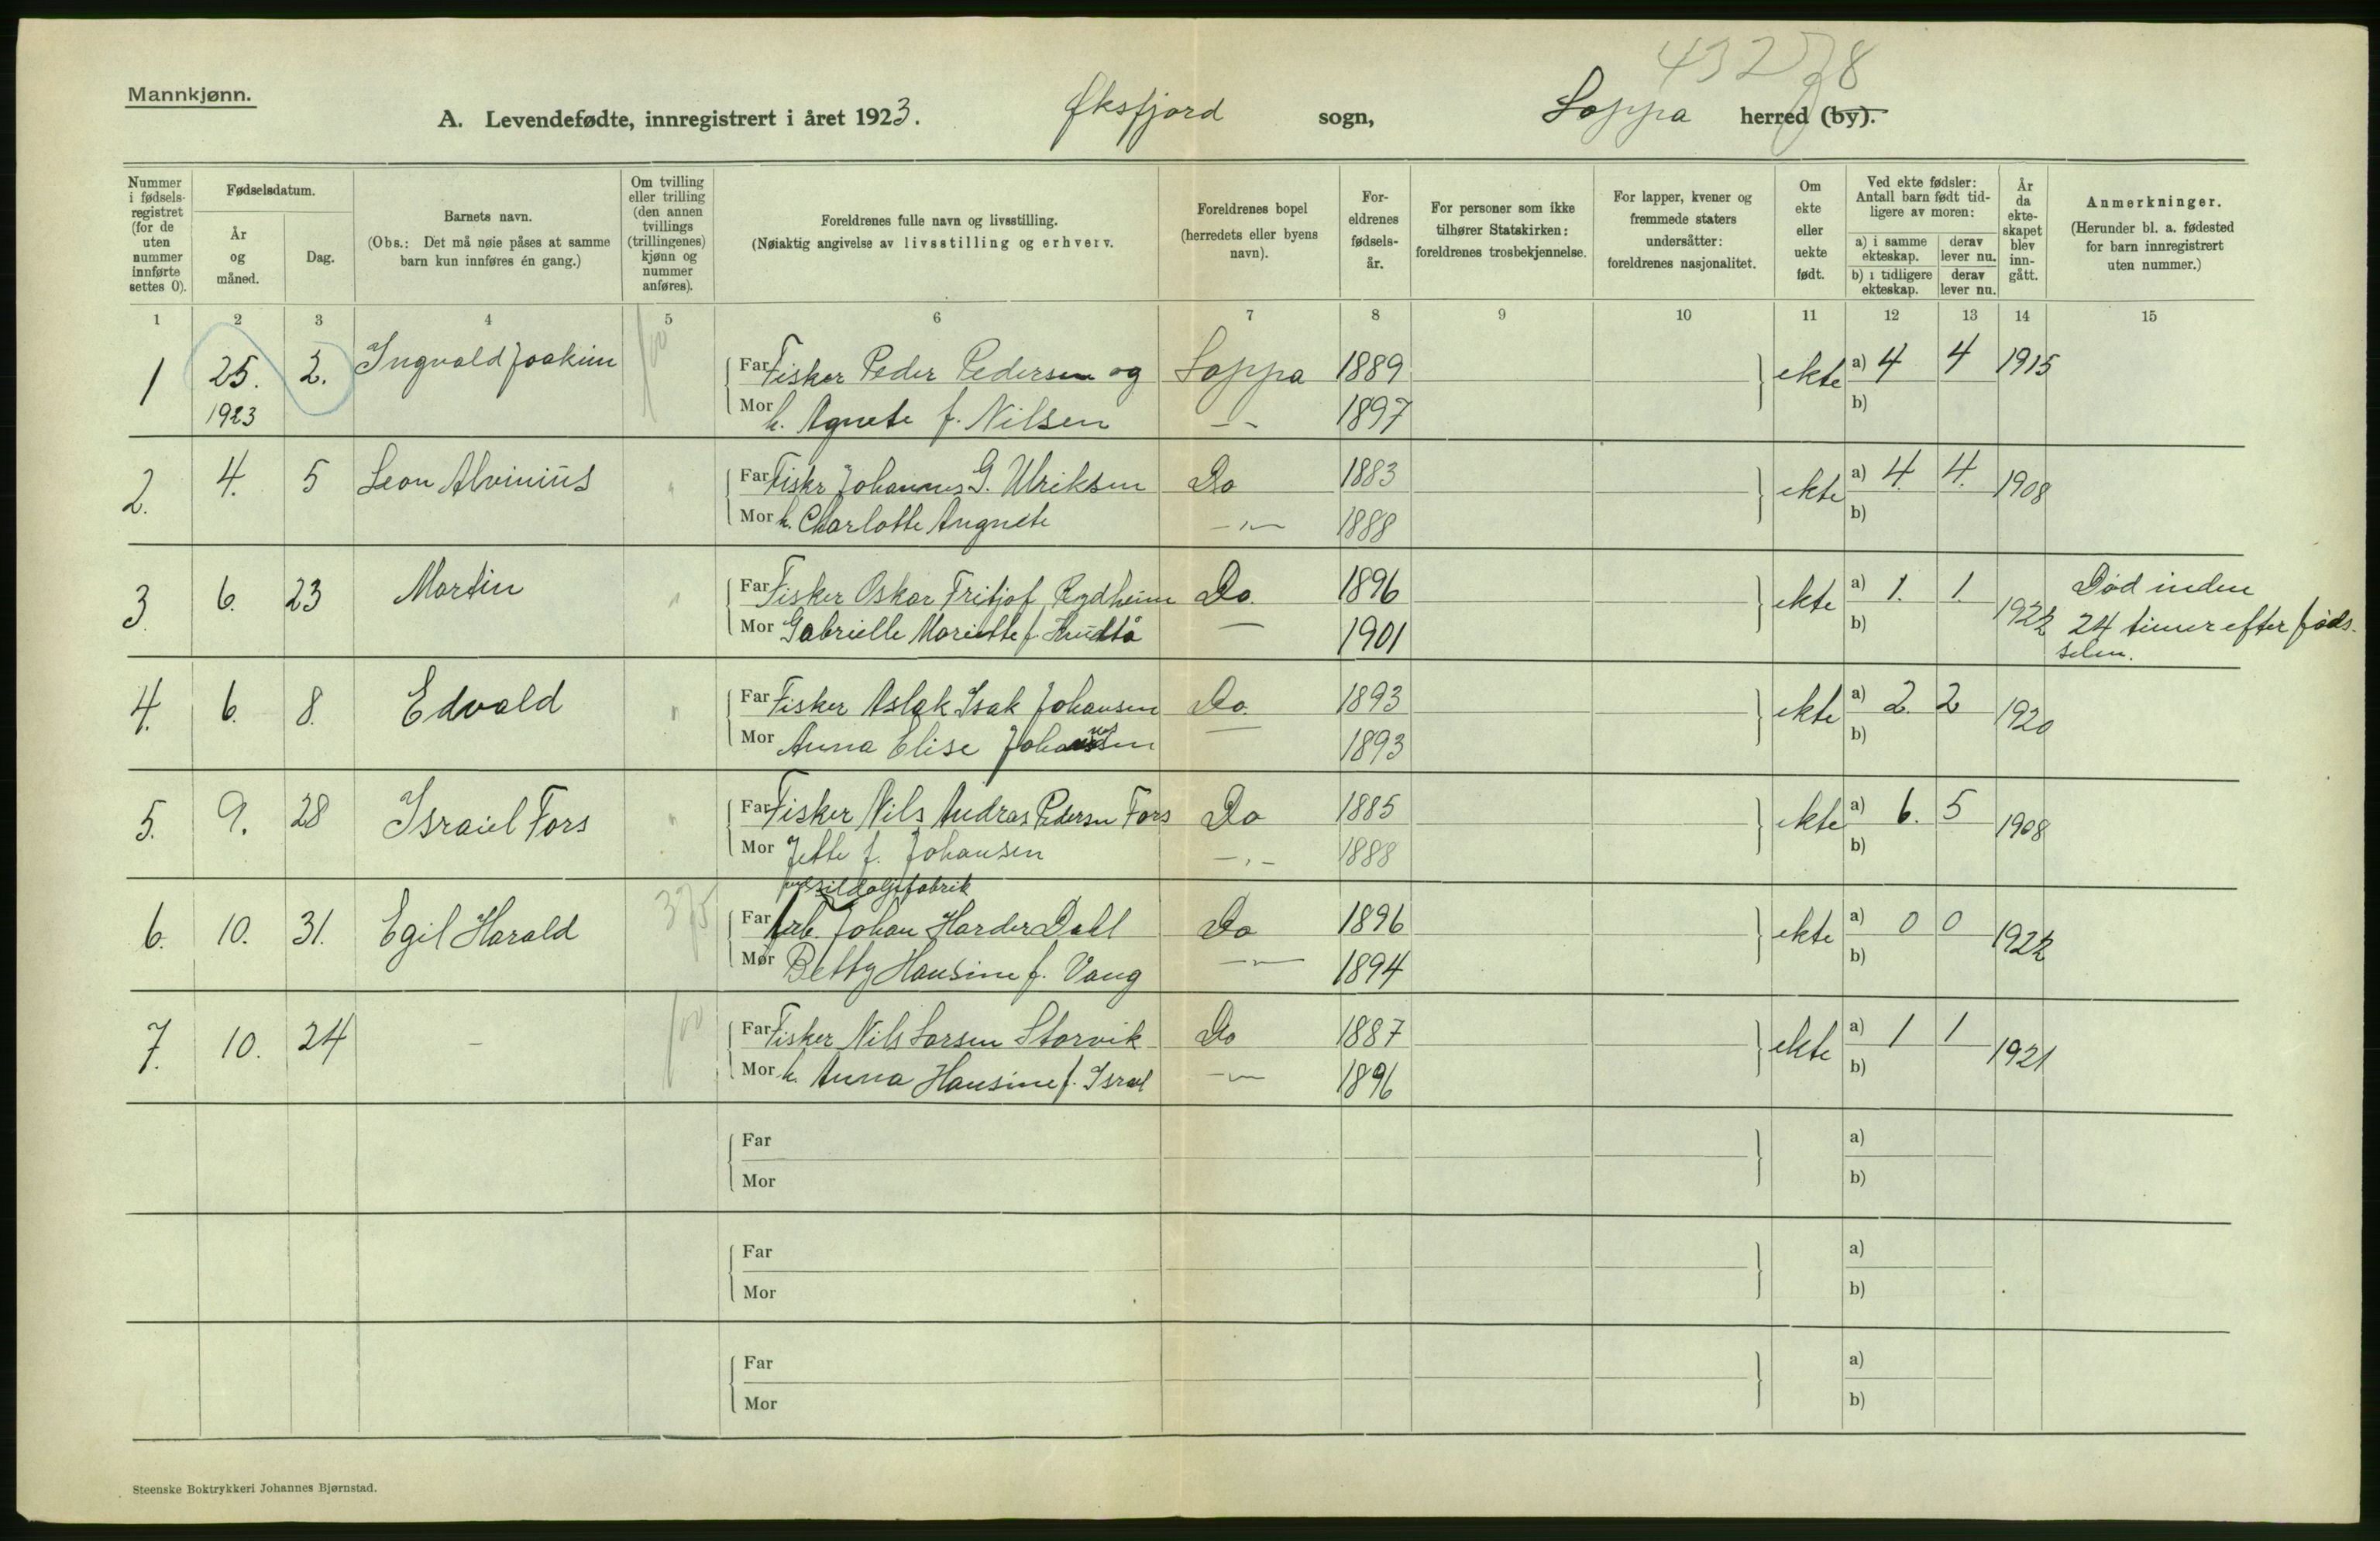 432 78
Mannkjønn.
A. Levendefødte, innregistrert i året 1923. Øksfjord sogn, Loppa herred (by).
Nummer i fødsels-registret (for de uten nummer innførte settes 0).
Fødselsdatum.
År og måned.
Dag.
Barnets navn.
(Obs.: Det må nøie påses at samme barn kun innføres én gang.)
Om tvilling eller trilling (den annen tvillings (trillingenes) kjønn og nummer anføres).
Foreldrenes fulle navn og livsstilling.
(Nøiaktig angivelse av livsstilling og erhverv.
Foreldrenes bopel (herredets eller byens navn).
For-eldrenes fødsels-år.
For personer som ikke tilhører Statskirken: foreldrenes trosbekjennelse.
For lapper, kvener og fremmede staters undersåtter: foreldrenes nasjonalitet.
Om ekte eller uekte født.
Ved ekte fødsler: Antall barn født tid-ligere av moren:
a) i samme ekteskap.
derav lever nu.
b) i tidligere ekteskap.
derav lever nu.
År da ekte-skapet blev inn-gått.
Anmerkninger.
(Herunder bl. a. fødested for barn innregistrert uten nummer.)
1 2 3 4 5 6 7 8 9 10 11 12 13 14 15
1 25. 2. Ingvald Joakim 100 Far Fisker Peder Pedersen og Loppa 1889 ekte a) 4 4 1915
1923 Mor h. Agnete f. Nilsen -"- 1897 b)
2. 4. 5 Leon Alvinius " Far Fiskr Johannes G. Ulriksen Do 1883 ekte a) 4. 4. 1908
Mor h. Charlotte Angnete -"- 1888 b)
3 6. 23 Martin " Far Fisker Oskar Fritjof Rydheim Do. 1896 ekte a) 1. 1. 1922 Død inden
24 timer efter føds-
selen.
Mor Gabrielle Mariette f. — 1901 b)
4. 6. 8. Edvald " Far Fisker Aslak Isak Johansen Do. 1893 ekte a) 2. 2 1920
Mor Anna Elise — 1893 b)
5. 9. 28 Israiel Fors " Far Fisker Nils Andras Pedersn Fors Do 1885 ekte a) 6. 5 1908
Mor Jette f. Johansen -"- 1888 b)
ved sildoljefabrik
6. 10. 31. Egil Harald 375 Far Arb. Johan Harder Dahl Do 1896 ekte a) 0 0 1922
Mor Betty Hansine f. Vang -"- 1894 b)
7. 10. 24 - 100 Far Fisker Nils Larsen Storvik Do 1887 ekte a) 1 1 1921
Mor h. Anna Hansine f. Israel -"- 1896 b)
Far a)
Mor b)
Far a)
Mor b)
Far a)
Mor b)
Steenske Boktrykkeri Johannes Bjørnstad.